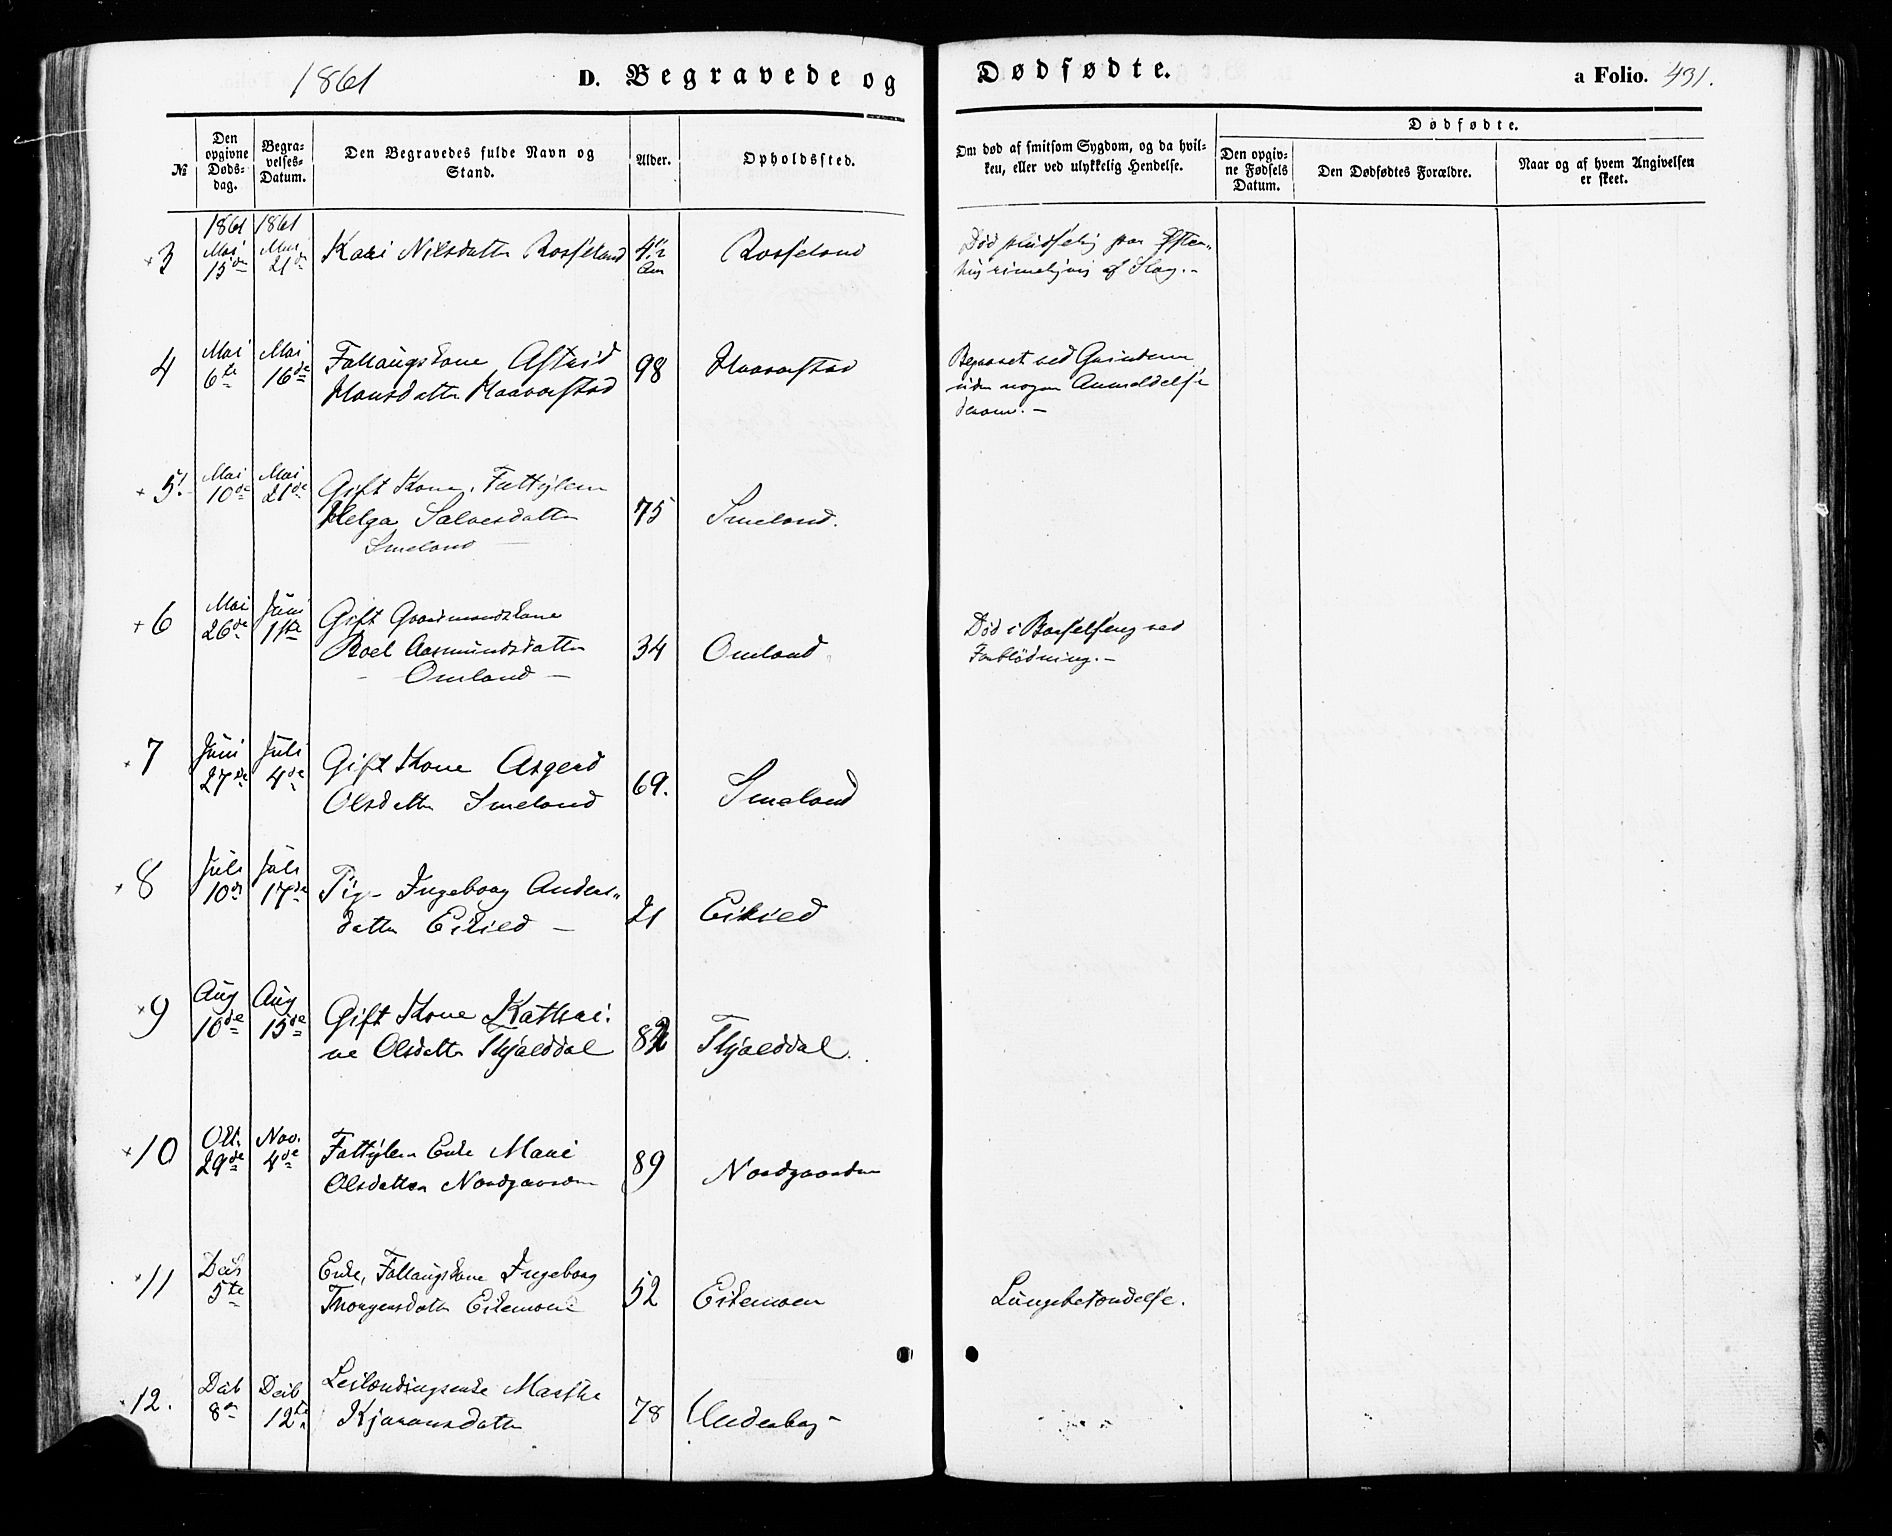 1861
D. Begravede og Dødfødte.
a Folio. 431.
№
Den opgivne Døds-dag.
Begra-velses-Datum.
Den Begravedes fulde Navn og Stand.
Alder.
Opholdssted.
Om død af smitsom Sygdom, og da hvil-ken, eller ved ulykkelig Hendelse.
Dødfødte.
Den opgiv-ne Fødsels Datum.
Den Dødfødtes Forældre.
Naar og af hvem Angivelsen er skeet.
1861 1861
+3 Mai 15de Mai 21de Kari Nilsdatter Rosseland 4½ Rosseland
Død pludselig
rimeligvis af Slag.-
4 Mai 6te Mai 16de Follaugskone Astrid
Hansdatter Haaverstad 98 Haaverstad
Begravet ved
uden nogen Anmeldelse
derom.-
+5. Mai 10de Mai 21de Gift Kone, Fattiglem
Helga Salvesdatter 75 Smeland.
Smeland
+6 Mai 26de Juni 1ste Gift Gaardmandskone
Roel Aasmundsdatter 34 Omland
- Omland -
Død i Barselseng ved
Forblødning.-
+7 Juni 27de Juli 4de Gift Kone Asgerd
Olsdatter Smeland 69. Smeland
+8 Juli 10de Juli 17de Pig- Ingeborg Anders-
datter Eikild - 21 Eikild
+9 Aug 10de Aug 15de Gift Kone Kathri-
ne Olsdatter Skjeldal 82 Skjeldal.
+10 Okt. 29de Nov. 4de Fattiglem Enke Mari
Olsdatter Nordgaarden 89 Nordgaarden
+11 Decb 5te Enke, Follaugskone Ingeborg
Thorgersdatter Eikemoen 52 Eikemoen
Lungebetændelse.
+12. Decb 8de Decb 12te Leilændingsenke Marthe
Kjøransdatter 78